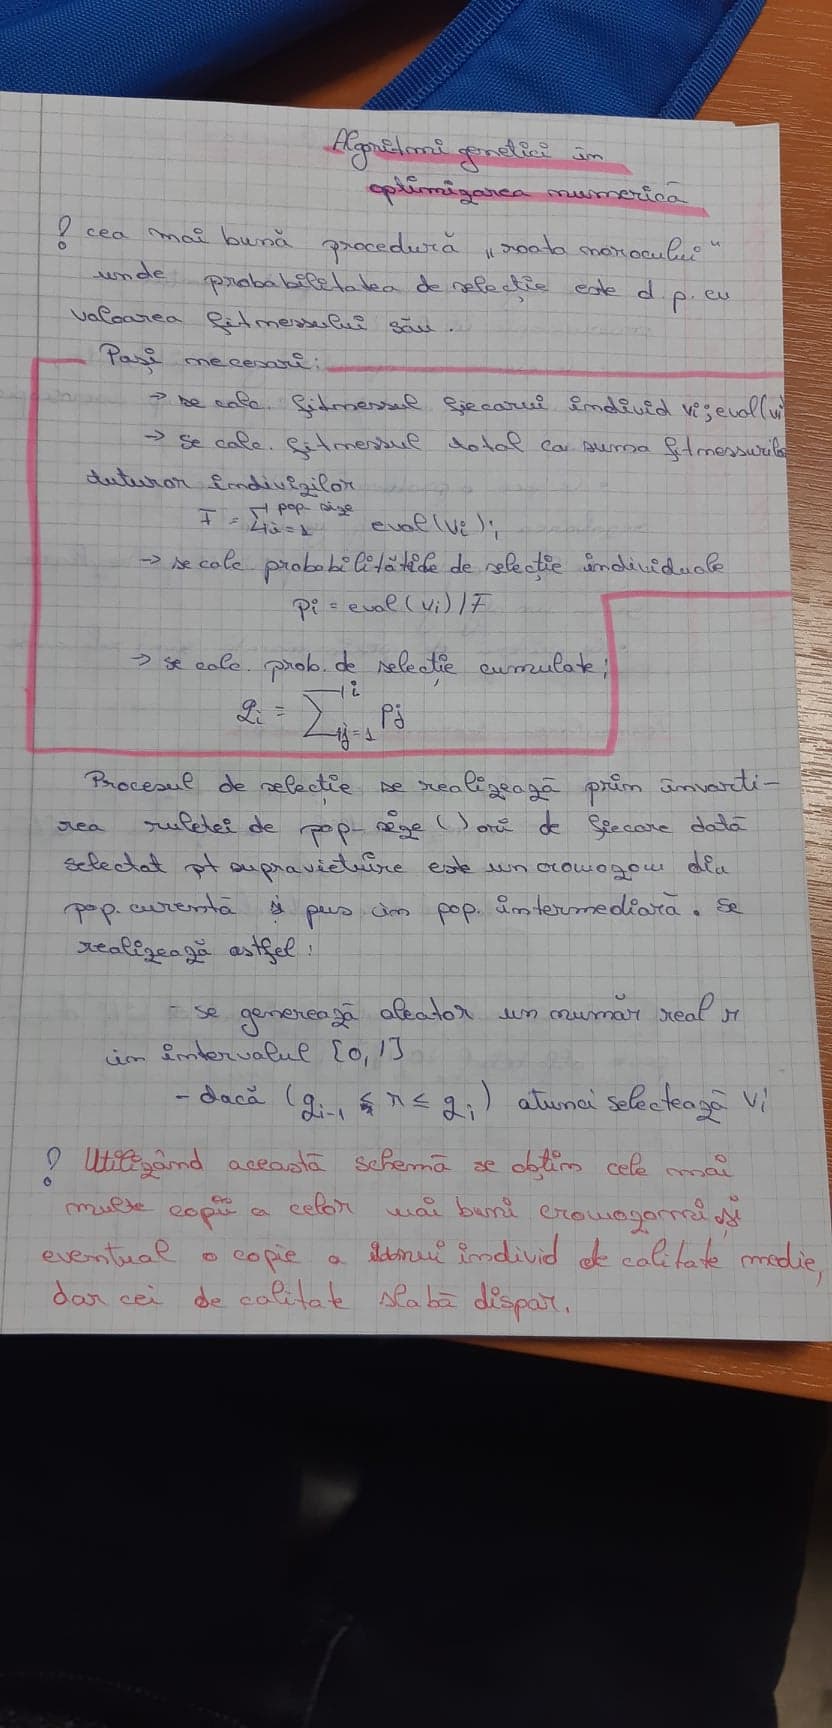 Algoritmi genetici în
optimizarea numerică
! cea mai bună procedură „roata norocului"
unde probabilitatea de selecție este d.p. cu
valoarea fitnessului său.
Pași necesari:
→ se calc. fitnessul fiecarui individ vi; eval(vi
→ se calc. fitnessul total ca suma fitnessurilo
tuturor indivizilor
F = ∑i=1 pop-size eval(vi);
→ se calc probabilitățile de selecție individuale
pi = eval(vi)/F
→ se calc. prob. de selecție cumulate;
qi = ∑j=1 i pj
Procesul de selecție se realizează prin învarti-
rea ruletei de pop-size () ori de fiecare dată
selectat pt supraviețuire este un cromozom din
pop. curentă și pus în pop. intermediară. Se
realizează astfel:
- se generează aleator un număr real r
în intervalul [0,1]
- dacă (qi-1 ≤ r ≤ qi) atunci selectează vi
! Utilizând această schemă se obțin cele mai
multe copii a celor mai buni cromozomi și
eventual o copie a unui individ de calitate medie,
dar cei de calitate slabă dispar.